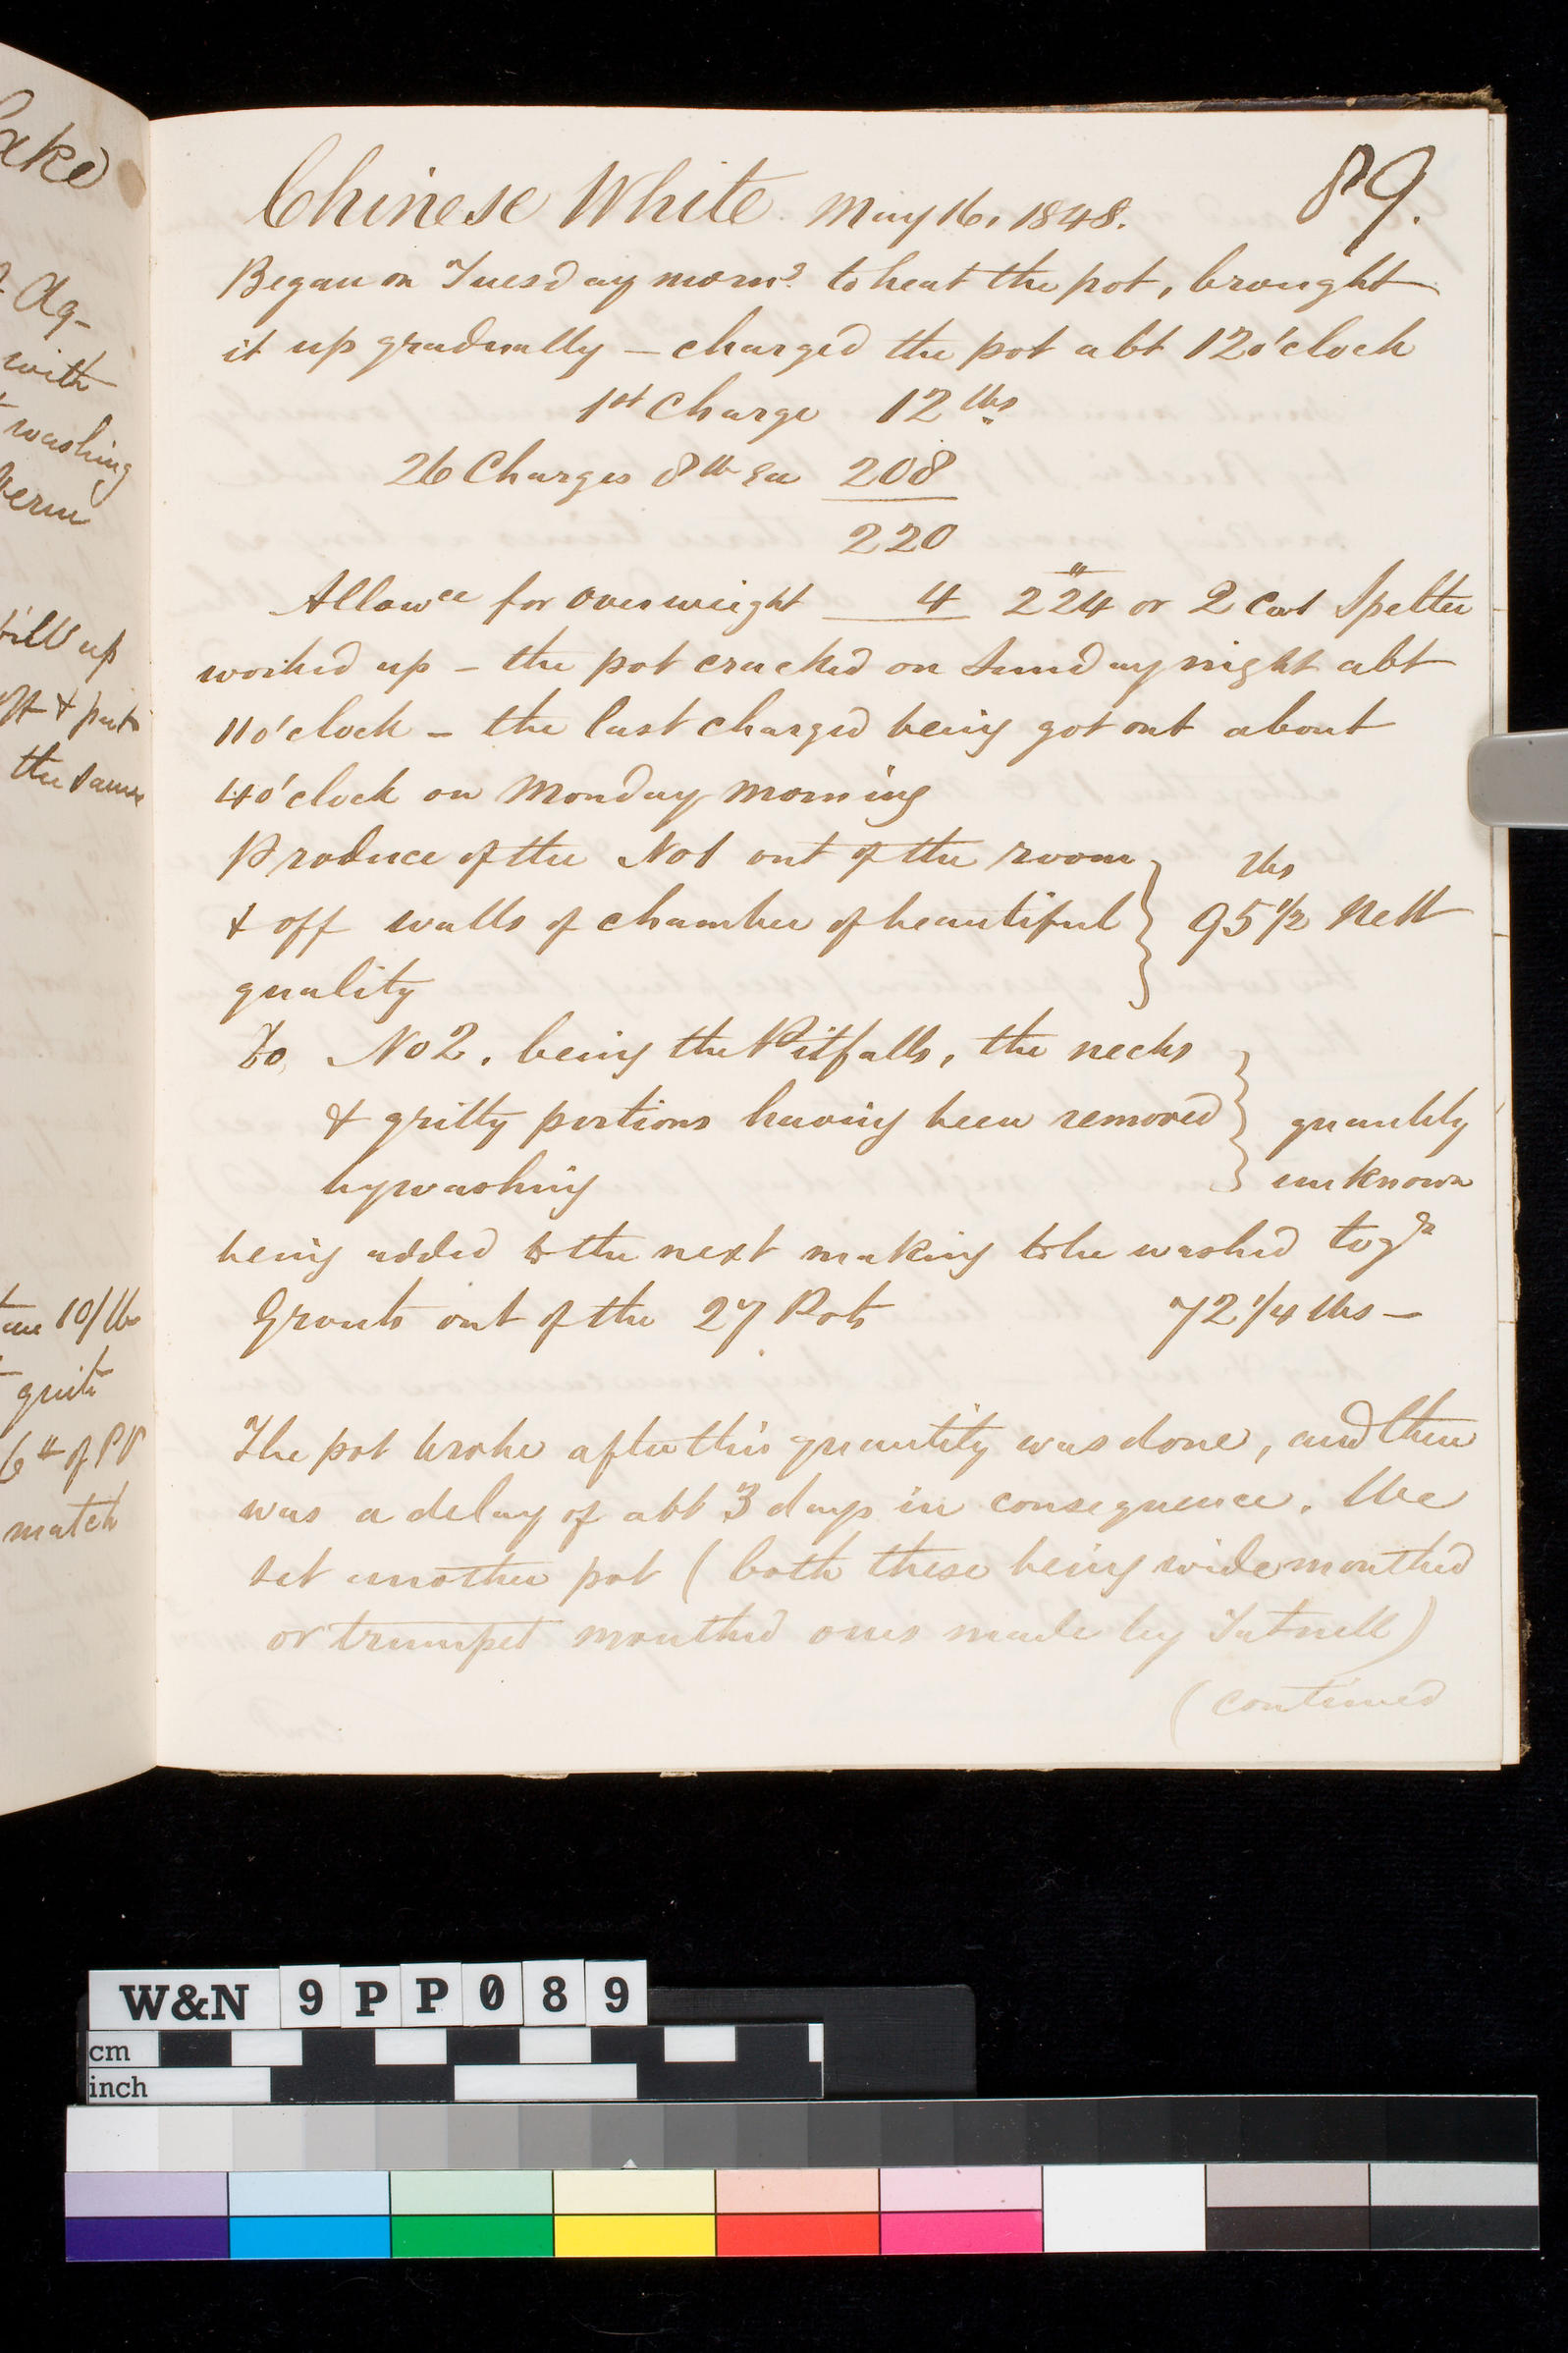 ake
Aq-
with
washing
fill up
& put
the same
10/ lb
quite
6 # of PP
match
89.
Chinese White. May 16, 1848.
Began on Tuesday morng. to heat the pot, brought
it up gradually – charged the pot abt 12 o'clock
1st Charge 12 lbs
26 Charges 8 lb Ea 208
220
Allowce for overweight 4 224 or 2 Cwt Spelter
worked up – the pot cracked on Sunday night abt
11 o'clock – the last charged being got out about
4 o'clock on Monday morning
Produce of the No 1 out of the room
& off walls of chamber of beautiful
quality
lbs
95 1/2 Nett
Do No 2. being the Pitfalls, the necks
& gritty portions having been removed
by washing
quantity
unknown
being added to the next making to be washed togr
Grouts out of the 27 Pots 72 1/4 lbs –
The pot broke after this quantity was done, and there
was a delay of abt 3 days in consequence. We
set another pot (both these being wide mouthed
or trumpet mouthed ones made by Tatnell)
(continued
W&N 9PP089
cm
inch